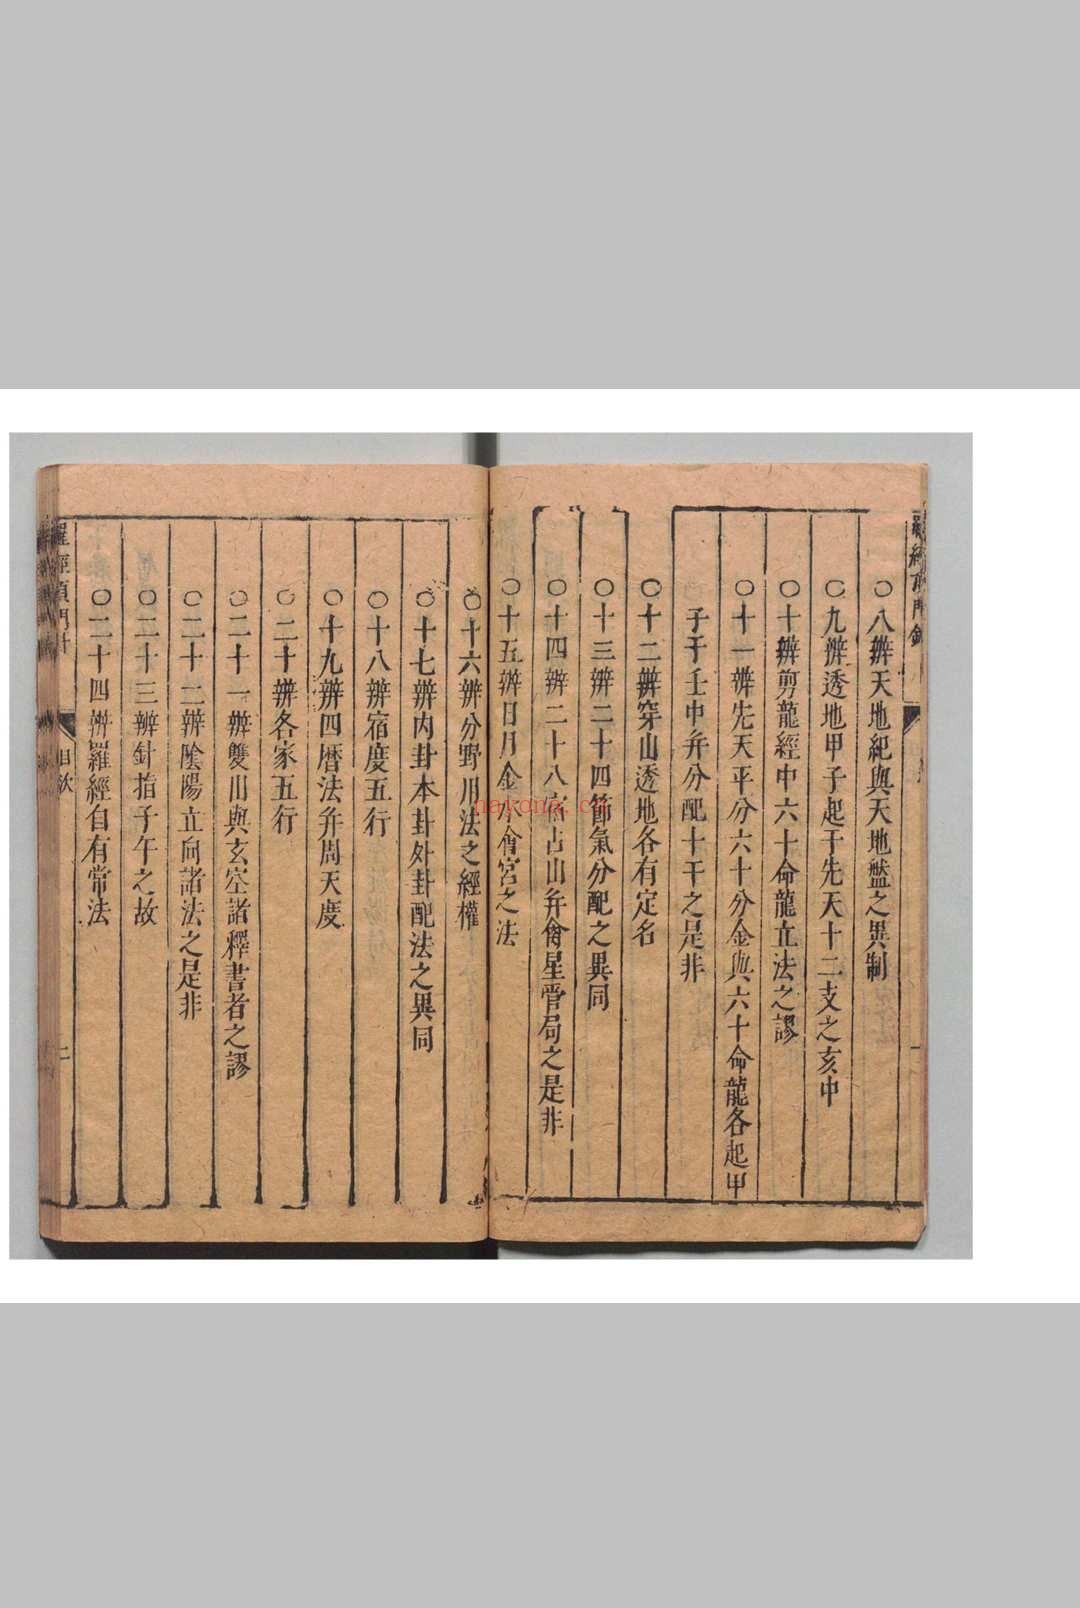 ○八辨天地紀與天地盤之異制
○九辨透地甲子起于先天十二支之亥中
○十辨剪龍經中六十命龍立法之謬
○十一辨先天平分六十分金與六十命龍各起甲
子于壬中弁分配十干之是非
○十二辨穿山透地各有定名
○十三辨二十四節氣分配之異同
○十四辨二十八宿占山弁禽星管局之是非
○十五辨日月金水會宮之法
○十六辨分野用法之經權
○十七辨内卦本卦外卦配法之異同
○十八辨宿度五行
○十九辨四曆法弁周天度
○二十辨各家五行
○二十一辨雙山與玄空諸釋書者之謬
○二十二辨陰陽立向諸法之是非
○二十三辨針指子午之故
○二十四辨羅經自有常法
羅經頂門針
目次
二
nakona.cn